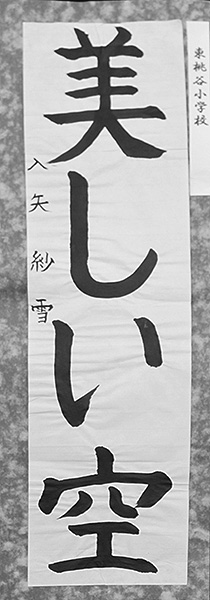 東桃谷小学校
美しい空
入矢紗雪